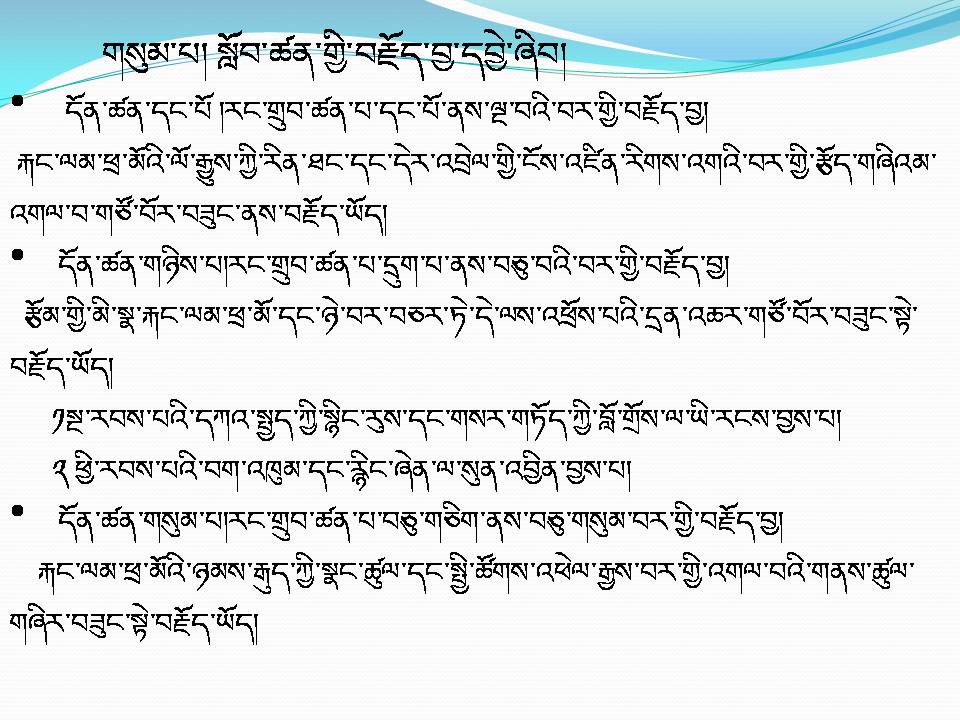 གསུམ་པ། སློབ་ཚན་གྱི་བརྗོད་བྱ་དབྱེ་ཞིབ།
• དོན་ཚན་དང་པོ །རང་གྲུབ་ཚན་པ་དང་པོ་ནས་ལྔ་བའི་བར་གྱི་བརྗོད་བྱ།
རྐང་ལམ་ཕྲ་མོའི་ལོ་རྒྱུས་ཀྱི་རིན་ཐང་དང་དེར་འབྲེལ་གྱི་ངོས་འཛིན་རིགས་འགའི་བར་གྱི་རྩོད་གཞིའམ་
འགལ་བ་གཙོ་བོར་བཟུང་ནས་བརྗོད་ཡོད།
• དོན་ཚན་གཉིས་པ།རང་གྲུབ་ཚན་པ་དྲུག་པ་ནས་བཅུ་བའི་བར་གྱི་བརྗོད་བྱ།
རྩོམ་གྱི་མི་སྣ་རྐང་ལམ་ཕྲ་མོ་དང་ཉེ་བར་བཅར་ཏེ་དེ་ལས་འཕྲོས་པའི་དྲན་འཆར་གཙོ་བོར་བཟུང་སྟེ་
བརྗོད་ཡོད།
༡སྔ་རབས་པའི་དཀའ་སྤྱད་ཀྱི་སྙིང་རུས་དང་གསར་གཏོད་ཀྱི་བློ་གྲོས་ལ་ཡི་རངས་བྱས་པ།
༢ ཕྱི་རབས་པའི་བག་འཁུམ་དང་རྙིང་ཞེན་ལ་སུན་འབྱིན་བྱས་པ།
• དོན་ཚན་གསུམ་པ།རང་གྲུབ་ཚན་པ་བཅུ་གཅིག་ནས་བཅུ་གསུམ་བར་གྱི་བརྗོད་བྱ།
རྐང་ལམ་ཕྲ་མོའི་ཉམས་རྒུད་ཀྱི་སྣང་ཚུལ་དང་སྤྱི་ཚོགས་འཕེལ་རྒྱས་བར་གྱི་འགལ་བའི་གནས་ཚུལ་
གཞིར་བཟུང་སྟེ་བརྗོད་ཡོད།